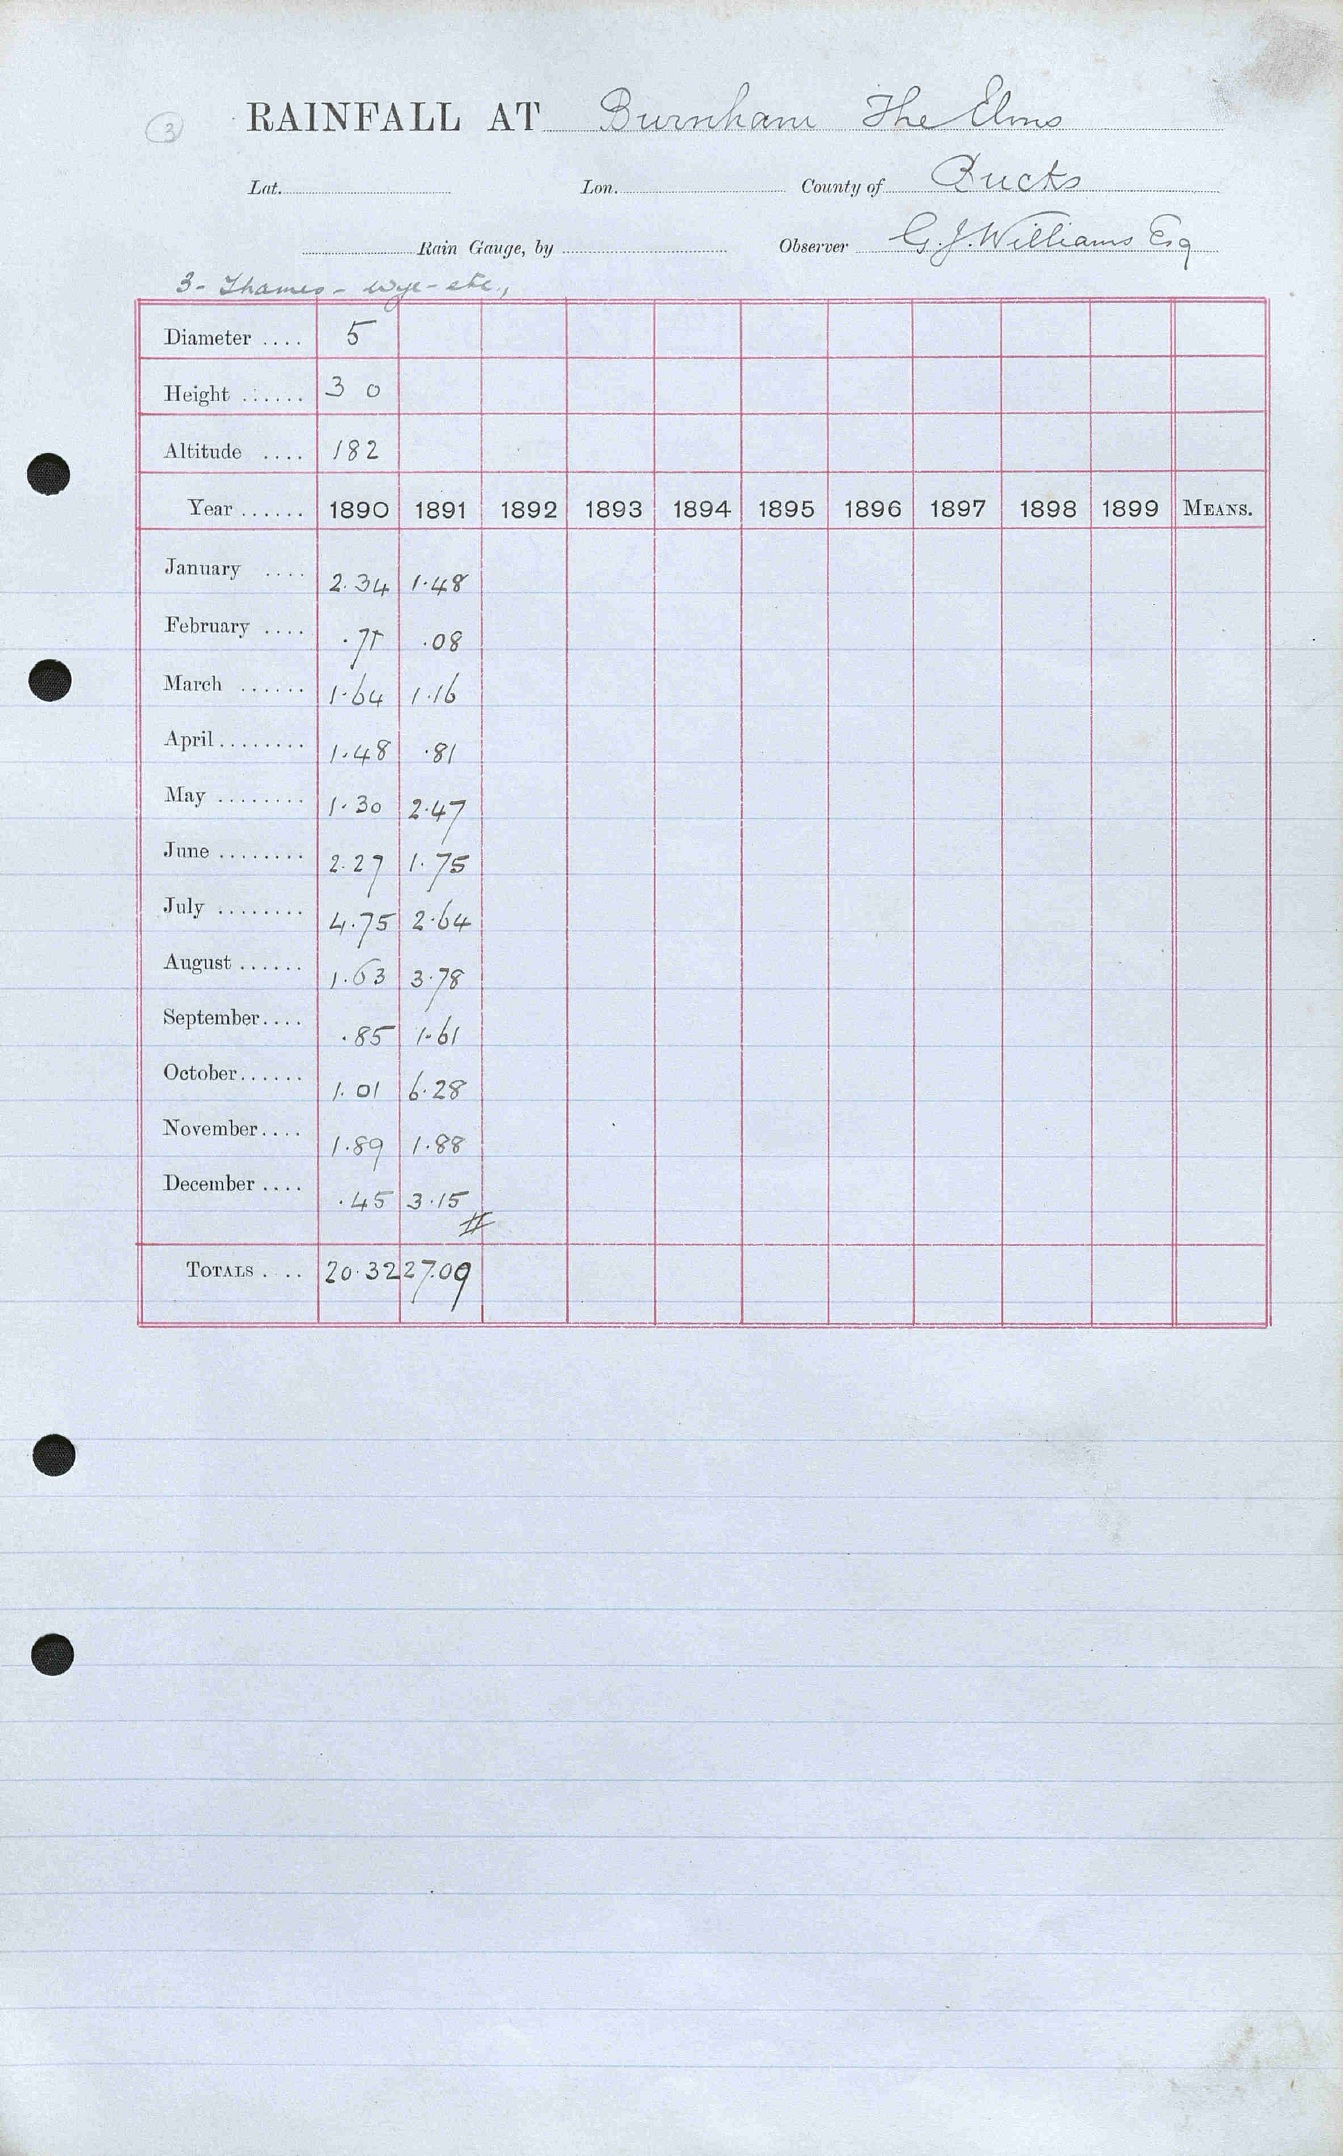 3
RAINFALL AT Burnham The Elms
Lat. Lon. County of Bucks
Rain Gauge, by Observer G. J. Williams Esq
3 - Thames - Wye - etc.,
Diameter .... 5
Height ...... 3 0
Altitude .... 182
Year ...... 1890 1891 1892 1893 1894 1895 1896 1897 1898 1899 MEANS.
January .... 2.34 1.48
February .... .71 .08
March ...... 1.64 1.16
April ........ 1.48 .81
May ........ 1.30 2.47
June ........ 2.27 1.75
July ........ 4.75 2.64
August ...... 1.63 3.78
September .... .85 1.61
October ...... 1.01 6.28
November .... 1.89 1.88
December .... .45 3.15
#
TOTALS .... 20.32 27.09